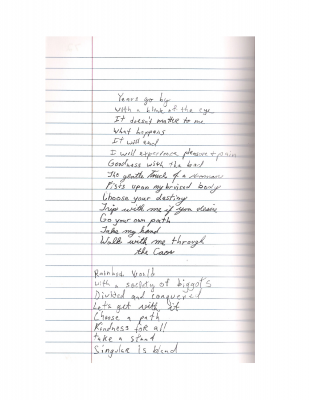 Years go by
With a blink of the eye
It doesn't matter to me
What happens
It will end
I will experience pleasure + pain
Goodness with the bad
The gentle touch of a
Fists upon my bruised body
Choose your destiny
Trip with me if you desire
Go your own path
Take my hand
Walk with me through
the
Rainbow World
With a society of biggots
Divided and conquered
Lets get with it
Choose a path
Kindness for all
take a stand
Singular is blend